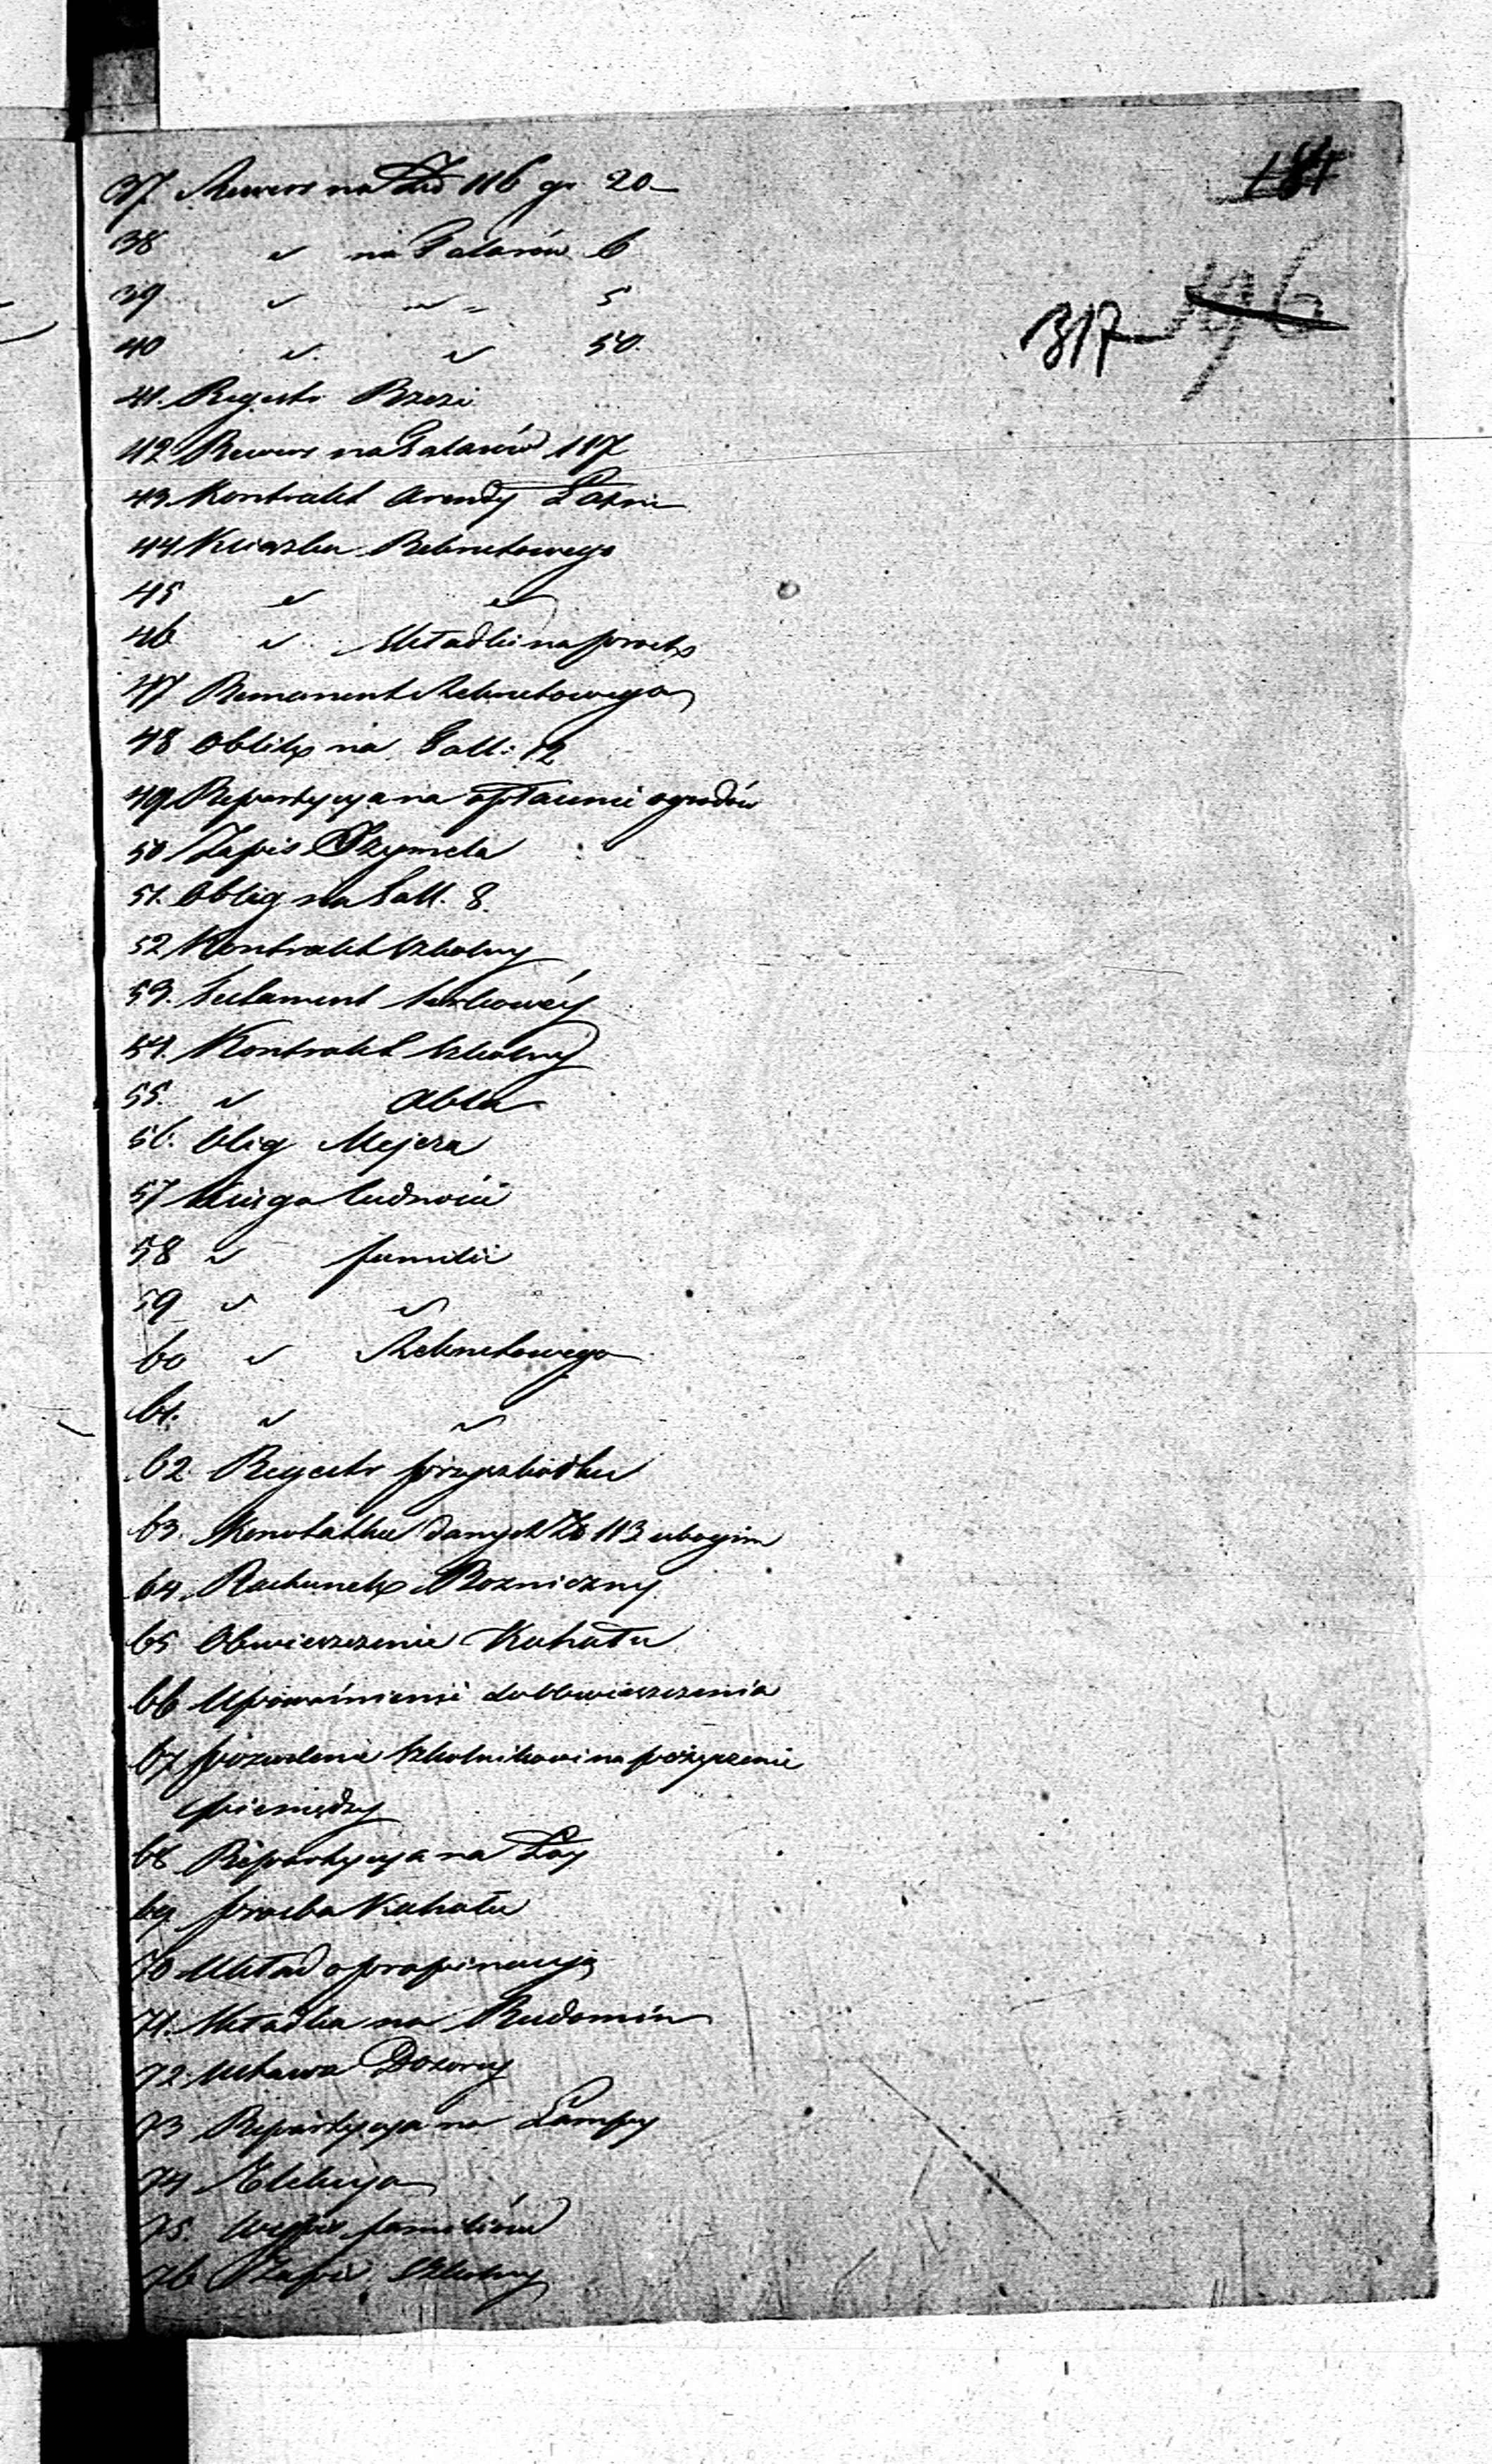 181
196
317
37. Rewers na Zło 116 gr 20
38 " na Talarów 6
39 " " 5
40 " " 50.
41. Regestr Brzezi
42 Rewers na Talarów 117
43 Kontrakt Arendy Łaźni
44 Kciążka Rekrutowego
45 " "
46 " Składki na proch
47 Remanent Rekrutowego
48 Oblik na Tall: 12
49. Repartycya na opłacenie ogrodów
50 Zapis Szymela
51. Oblig na Tall. 8.
52 Kontrakt Szkolny
53. Testament
54. Kontrakt Szkolny
55. " Abla
56. Oblig Mejera
57 Xięga ludności
58 " familii
59 " "
60 " Rekrutowego
61. " "
62 Regestr
63. Konotatka danych Zło 113 ubogim
64. Rachunek Bożniczny
65 Obwieszczenie Kahału
66 Upoważnienie do obwieszczenia
67 pozwolenie Szkolnikowi na pożyczenie
pieniędzy
68 Repartycya na Łóy
69 prozba Kahału
70 Układ o propinacyją
71. Składka na Rudomin
72 Ustawa Dozorcy
73 Repartycya na Lampy
74 Elekcya
75. familiów
76 Zapis Szkolny